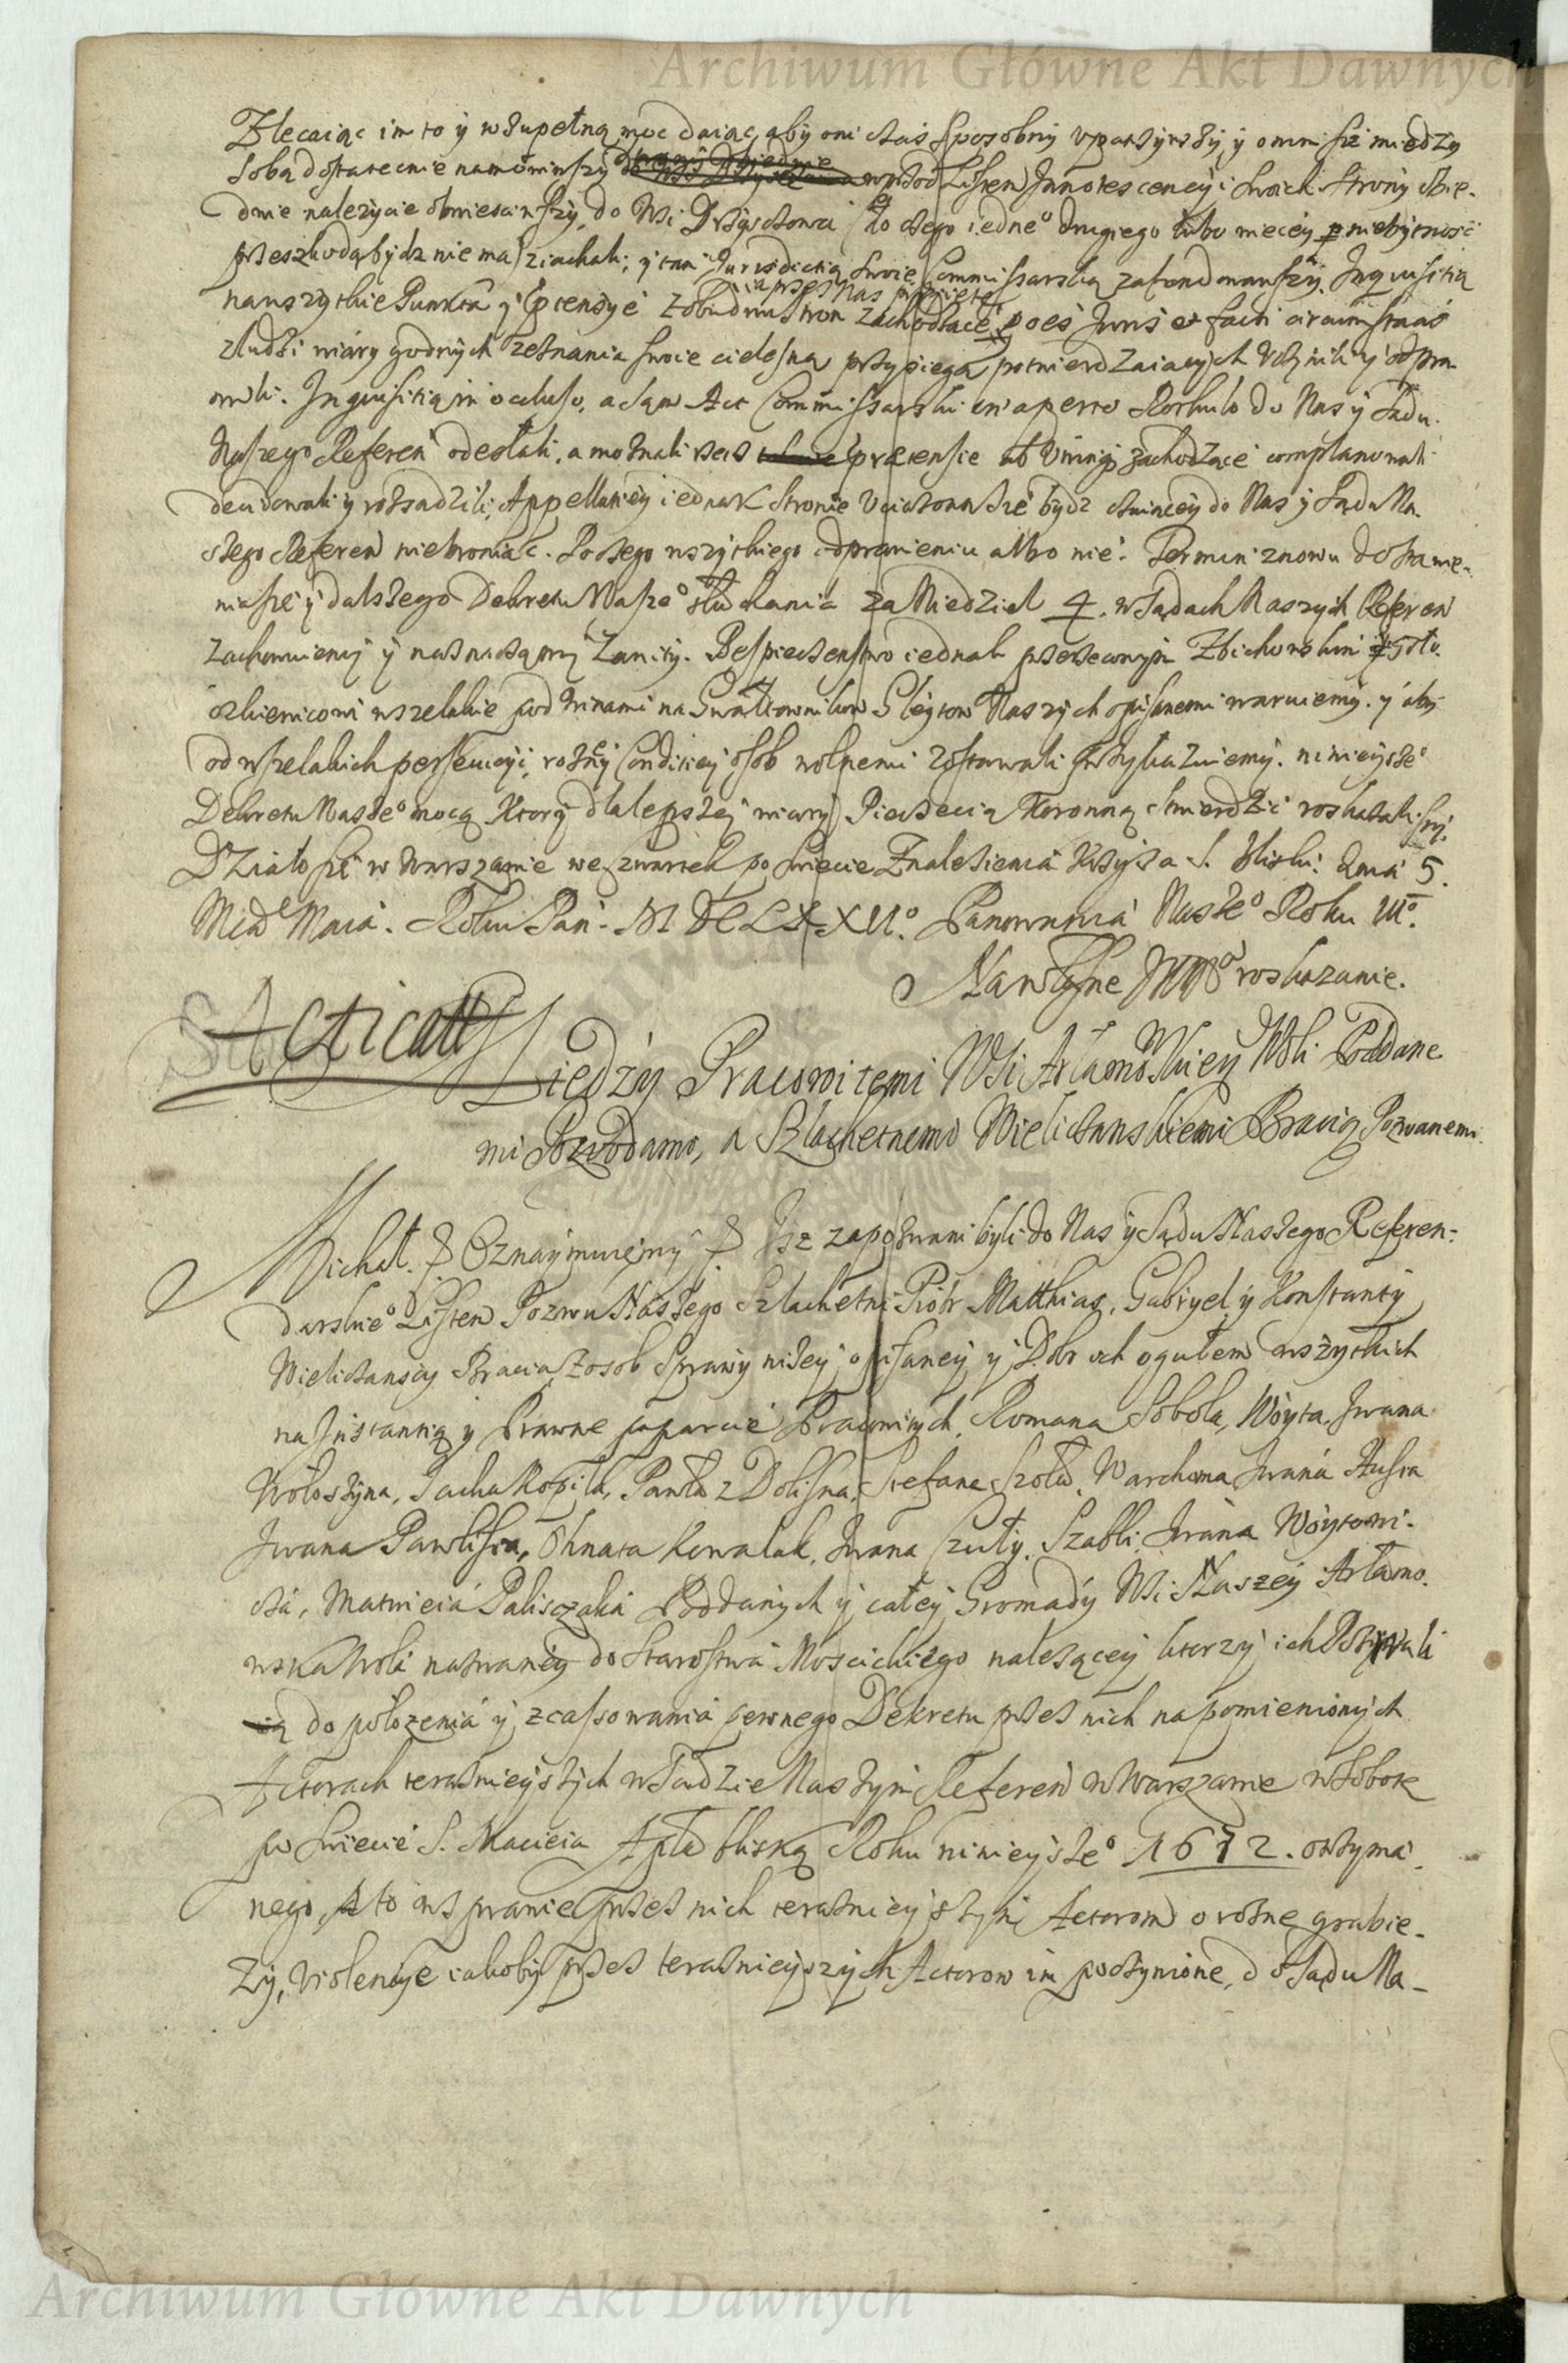 Archiwum Główne Akt Dawnych
Zlecaiąc im to y w zupełną moc daiąc, aby oni czas sposobny upatrzywszy y o nim się miedzy
sobą dostatecznie namowiwszy wprzod Listem Innotescencyi swoich Strony obie-
dwie należycie obwiesciwszy, do Wsi Drzyczowa (do czego iedne° drugiego lubo wiecey niebytność
przeszkodą bydz nie ma) ziachali; y tam Jurisdictią swoię Commissarską zafundowawszy, Inquisitią
na wszytkie Punkta y ptensye z obudwu stron zachodzące, a przez Nas przyięte poes Juris et facti circumstaās
z ludzi wiary godnych zeznania swoie cielesną przysięgą potwierdzaiących uczynili y odpra-
wili. Inquisitią in occluso, a sąm Act Commissarski in aperto Rotulo do Nas y Sądu
Naszego Referen̄ odesłali, a możnali rzecz prætensie ab utrinq; zachodzące complanowali
decidowali y rozsądzili, Appellaciey iednak stronie uciążoną się bydz czuiącey do Nas y Sądu Na-
szego Referen̄ niebroniąc. Po czego wszytkiego odprawieniu albo nie. Termin znowu do stawie-
nia się y dalszego Dekretu Nasze° słuchania za Niedziel 4. w Sądach Naszych Referen̄
zachowuiemy y naznaczamy zawity. Bespieczenstwo iednak przerzeczonym Zbichowskim
wszelakie pod winami na Gwałtownikow Gleytow Naszych opisanemi waruiemy. y aby
od wszelakich persecucyi, rożny Conditiey osob wolnemi zostawali przykazuiemy. ninieysze°
Dekretu Nasze° mocą. Ktory dla lepszey wiary Pieczęcią Koronną stwierdzić roskazalismy.
Działo się w Warszawie we czwartek po Swięcie Znalezienia Krzyża S. blisko: dnia 5.
Mca Maia. Roku Pań. M DC LXXII°. Panowania Nasze° Roku III°.
Na własne JKM° roskazanie.
Acticatū
Miedzy Pracowitemi Wsi Artamowskiey Woli Poddane-
mi Powodamo, a Szlachetnemi Wieliczanskiemi Bracią Pozwanemi.
Michał. Oznaymuiemy Isz zapozwani byli do Nas y Sądu Naszego Referen-
darskie° Listem Pozwu Naszego Szlachetni Piotr Matthias, Gabryel y Konstanty
Wieliczanscy Bracia z osob Sprawy niżey opisaney y Dobr ich ogułem wszytkich
na Instantią y Prawne poparcie Pracowitych, Romana Sobola, Woyta, Iwana
Wołoszyna, Sacha Kopilk, Pawła z Dolisna, Stefana Szołd, Warchoma Iwana Husia
Iwana Pawlisia, Ohnata Kowalak, Iwana Czuły, Szabli, Iwana Woytowi-
cza, Matwieia Palisczaka Poddanych y całey Gromady Wsi Naszey Artamo-
wska Woli nazwaney do Starostwa Moscickiego należącey ktorzy ich Pozywali
do położenia y zcassowania pewnego Dekretu przez nich na pomienionych
Actorach teraznieyszych w Sądzie Naszym Referen̄ w Warszawie w Sobotę
po Swięcie S. Macieia Apła bliską Roku ninieysze° 1672. otrzyma-
nego, A to w sprawie przez nich teraznieyszym Actorom o rożne grabie-
zy, violencye iakoby przez teraznieyszych Actorow im poczynione, do Sądu Na-
Archiwum Główne Akt Dawnych